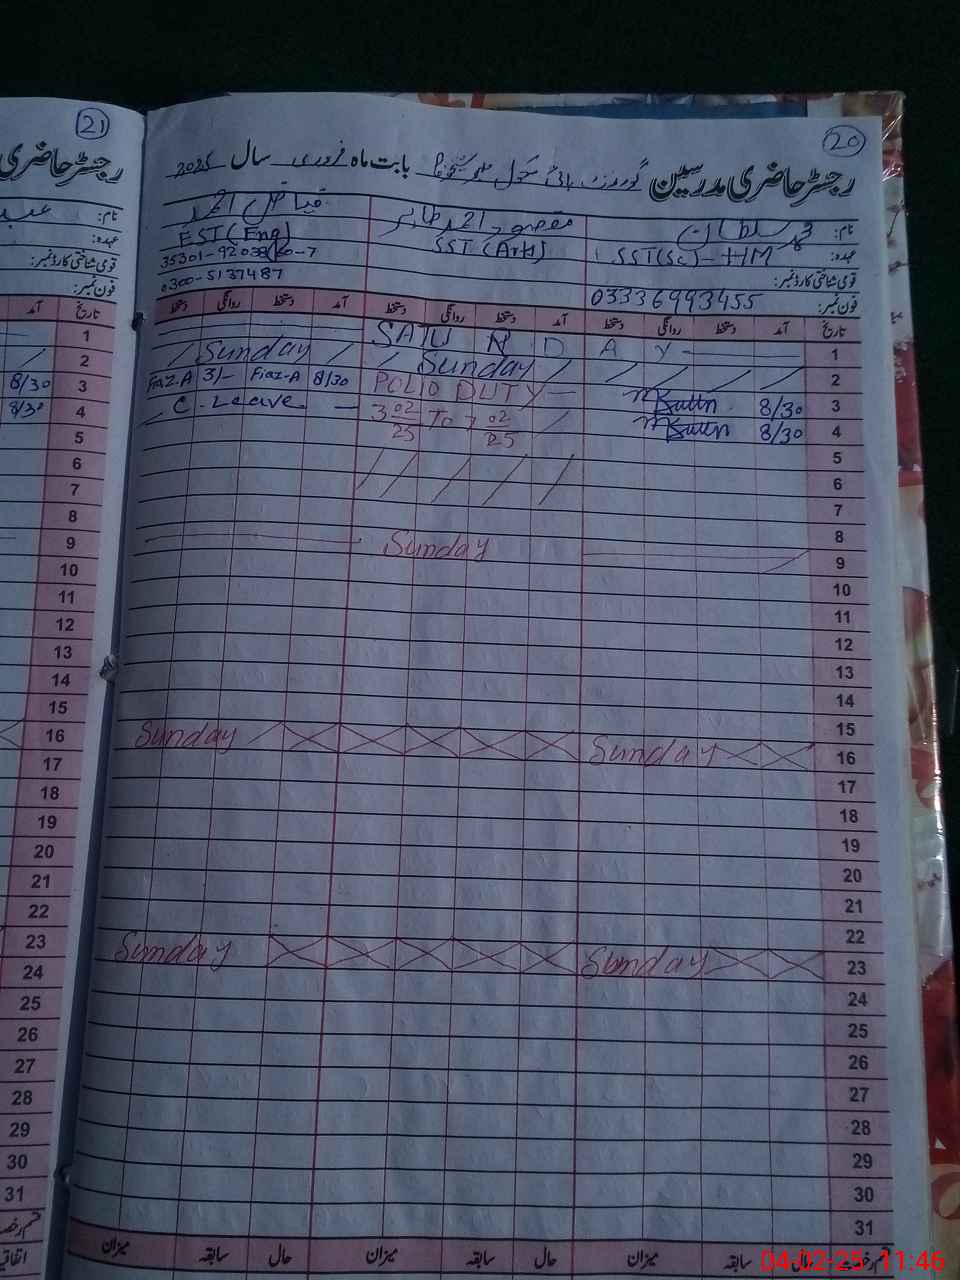 21
20
رجسٹر حاضری مدرسین گورنمنٹ ہائی سکول بابت ماہ فروری سال 2025
رجسٹر حاضری
نام: محمد سلطان
مقصود احمد طاہر
فیاض احمد
عہدہ: SST(Sc)-HM
SST (Arts)
EST (Eng)
قومی شناختی کارڈ نمبر:
فون نمبر: 03336993455
0300-5137487
نام:
عہدہ:
قومی شناختی کارڈ نمبر:
فون نمبر:
تاریخ آمد دستخط روانگی دستخط آمد دستخط روانگی دستخط آمد دستخط روانگی دستخط
تاریخ آمد
1 SATURDAY
2 Sunday Sunday
3 8/30 POLIO DUTY 8/30 Fiaz-A 3/- Fiaz-A
4 8/30 3 02/25 To 7 02/25 C. Leave
5
6
7
8
9 Sunday
10
11
12
13
14
15
16 Sunday Sunday
17
18
19
20
21
22
23 Sunday Sunday
24
25
26
27
28
29
30
31
1
2
3 8/30
4 8/30
5
6
7
8
9
10
11
12
13
14
15
16
17
18
19
20
21
22
23
24
25
26
27
28
29
30
31
حال سابقہ میزان حال سابقہ میزان حال سابقہ میزان
04-02-25 11:46